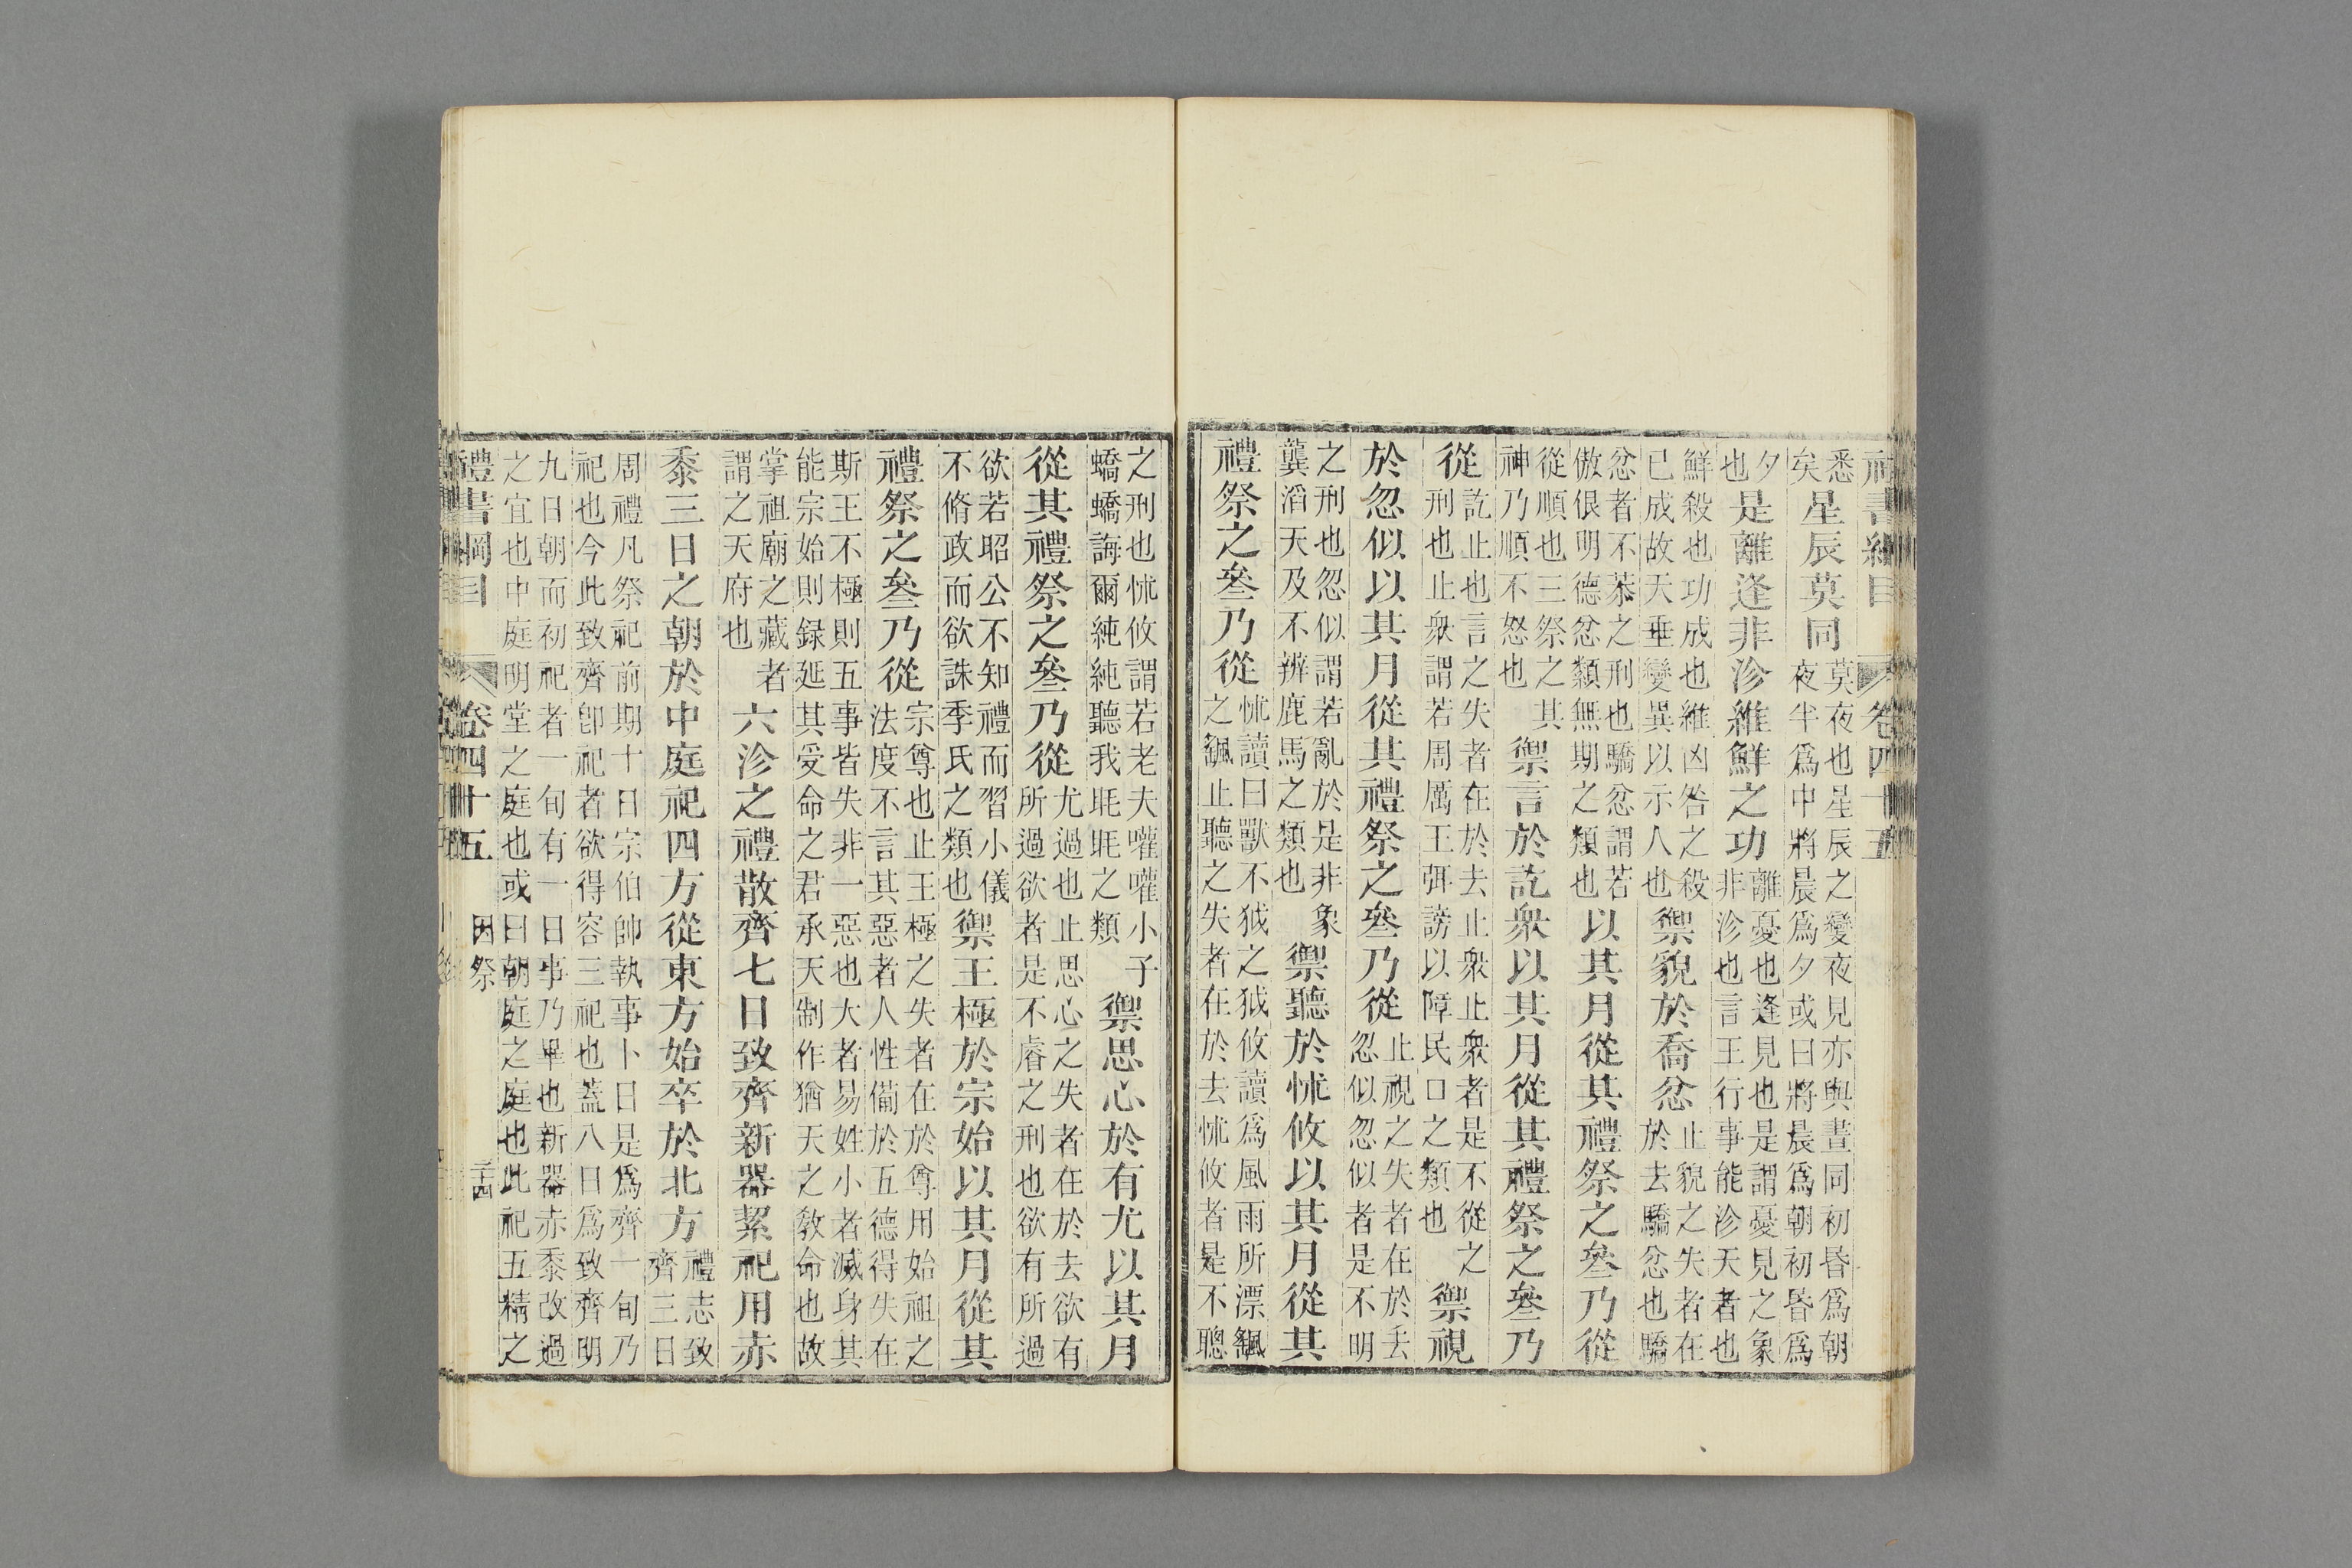 禮書綱目 卷四十五
悉矣星辰莫同莫夜也星辰之變夜見亦與晝同初昬爲朝夜半爲中將晨爲夕或曰將晨爲朝初昬爲
夕也是離逢非沴維鮮之功離憂也逢見也是謂憂見之象非沴也言王行事能沴天者也
鮮殺也功成也維凶咎之殺已成故天垂變異以示人也禦貌於喬忿止貌之失者在於去驕忿也驕
忿者不恭之刑也驕忿謂若傲佷明德忿類無期之類也以其月從其禮祭之叄乃從
從順也三祭之其神乃順不怒也禦言於訖衆以其月從其禮祭之叄乃
從訖止也言之失者在於去止衆止衆者是不從之刑也止衆謂若周厲王弭謗以障民口之類也禦視
於忽似以其月從其禮祭之叄乃從止視之失者在於去忽似忽似者是不明
之刑也忽似謂若亂於是非象龔滔天及不辨鹿馬之類也禦聽於怵攸以其月從其
禮祭之叄乃從怵讀曰獸不狘之狘攸讀爲風雨所漂颻之颻止聽之失者在於去怵攸者是不聰
之刑也怵攸謂若老夫嚾嚾小子蟜蟜誨爾純純聽我眊眊之類禦思心於有尤以其月
從其禮祭之叄乃從尤過也止思心之失者在於去欲有所過欲者是不睿之刑也欲有所過
欲若昭公不知禮而習小儀不脩政而欲誅季氏之類也禦王極於宗始以其月從其
禮祭之叄乃從宗尊也止王極之失者在於尊用始祖之法度不言其惡者人性備於五德得失在
斯王不極則五事皆失非一惡也大者易姓小者滅身其能宗始則録延其受命之君承天制作猶天之敎命也故
掌祖廟之藏者謂之天府也六沴之禮散齊七日致齊新器絜祀用赤
黍三日之朝於中庭祀四方從東方始卒於北方禮志致齊三日
周禮凡祭祀前期十日宗伯帥執事卜日是爲齊一旬乃祀也今此致齊卽祀者欲得容三祀也蓋八日爲致齊明
九日朝而初祀者一旬有一日事乃畢也新器赤黍改過之宜也中庭明堂之庭也或曰朝庭之庭也此祀五精之
禮書綱目 卷四十五 因祭 二十四